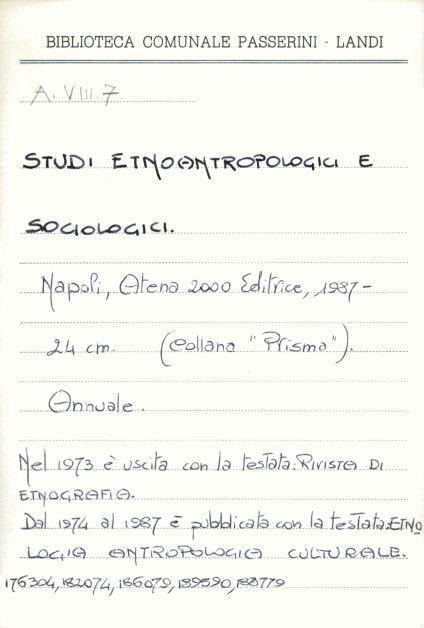 BIBLIOTECA COMUNALE PASSERINI - LANDI
A. VIII. 7
STUDI ETNOANTROPOLOGICI E
SOCIOLOGICI.
Napoli, Atena 2000 Editrice, 1987-
24 cm. (Collana "Prisma").
Annuale.
Nel 1973 è uscita con la testata: RIVISTA DI
ETNOGRAFIA.
Dal 1974 al 1987 è pubblicata con la testata: ETNO
LOGIA ANTROPOLOGIA CULTURALE.
176304, 182074, 186079, 189590, 188779